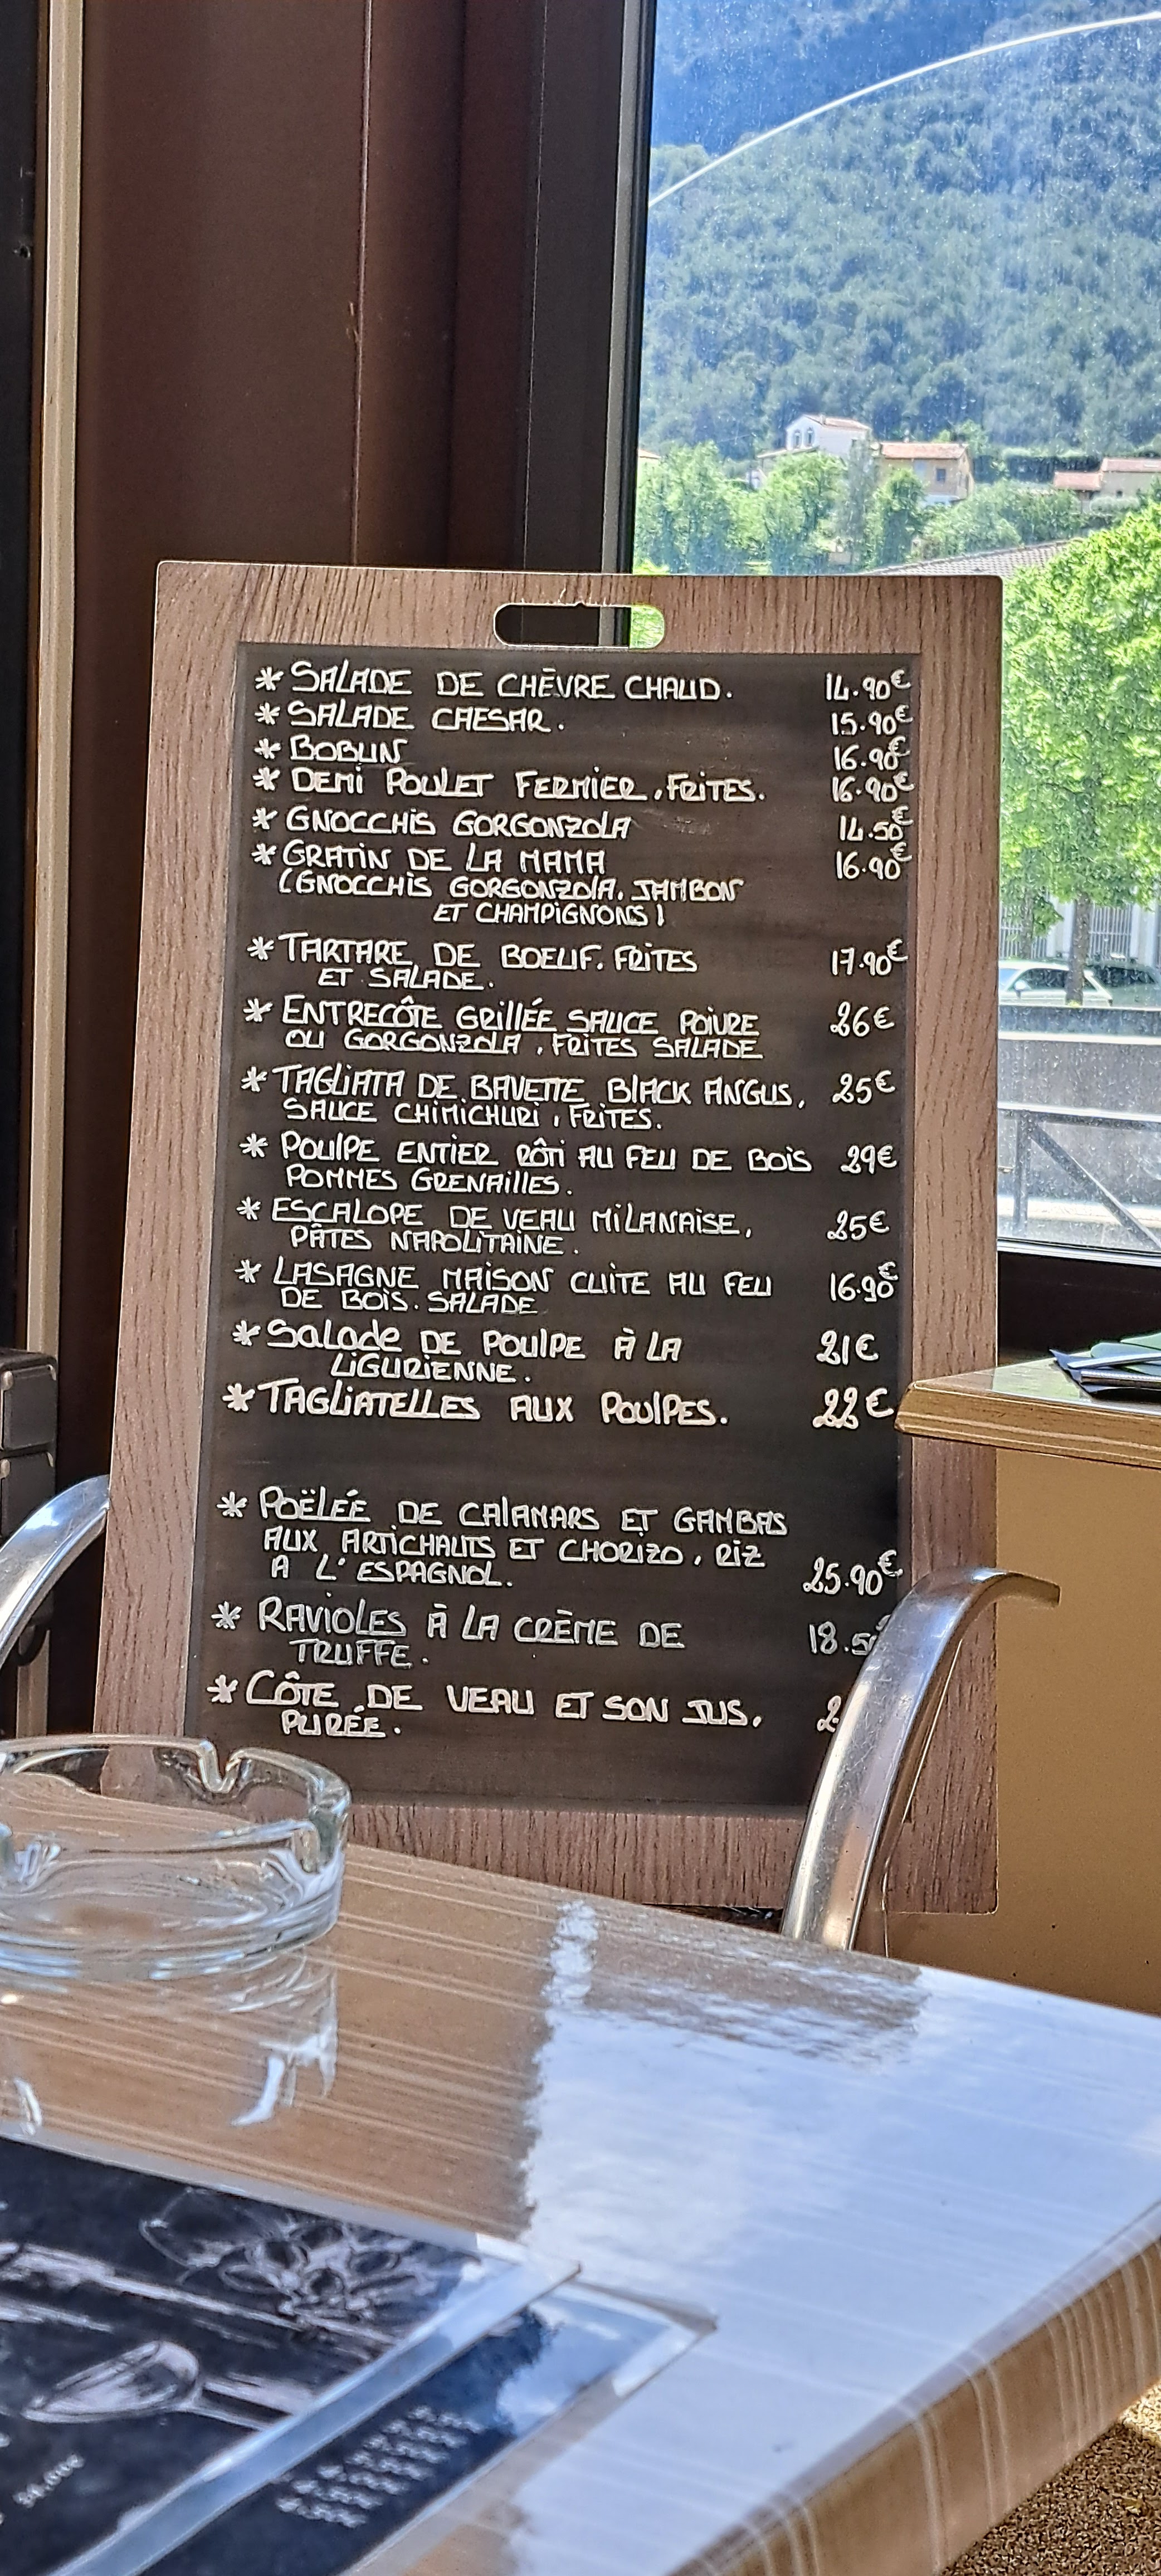 * SALADE DE CHÈVRE CHAUD. 14.90€
* SALADE CAESAR. 15.90€
* BOBUN 16.90€
* DEMI POULET FERMIER, FRITES. 16.90€
* GNOCCHIS GORGONZOLA 14.50€
* GRATIN DE LA MAMA 16.90€
(GNOCCHIS GORGONZOLA, JAMBON
ET CHAMPIGNONS)
* TARTARE DE BOEUF. FRITES 17.90€
ET SALADE.
* ENTRECÔTE GRILLÉE SAUCE POIVRE 26€
OU GORGONZOLA, FRITES SALADE
* TAGLIATA DE BAVETTE BLACK ANGUS, 25€
SAUCE CHIMICHURI, FRITES.
* POULPE ENTIER RÔTI AU FEU DE BOIS 29€
POMMES GRENAILLES.
* ESCALOPE DE VEAU MILANAISE, 25€
PÂTES NAPOLITAINE.
* LASAGNE MAISON CUITE AU FEU 16.90€
DE BOIS. SALADE
* SALADE DE POULPE À LA 21€
LIGURIENNE.
* TAGLIATELLES AUX POULPES. 22€
* POËLÉE DE CALAMARS ET GAMBAS
AUX ARTICHAUTS ET CHORIZO, RIZ
A L'ESPAGNOL. 25.90€
* RAVIOLES À LA CRÈME DE 18.5
TRUFFE.
* CÔTE DE VEAU ET SON JUS, 2
PURÉE.